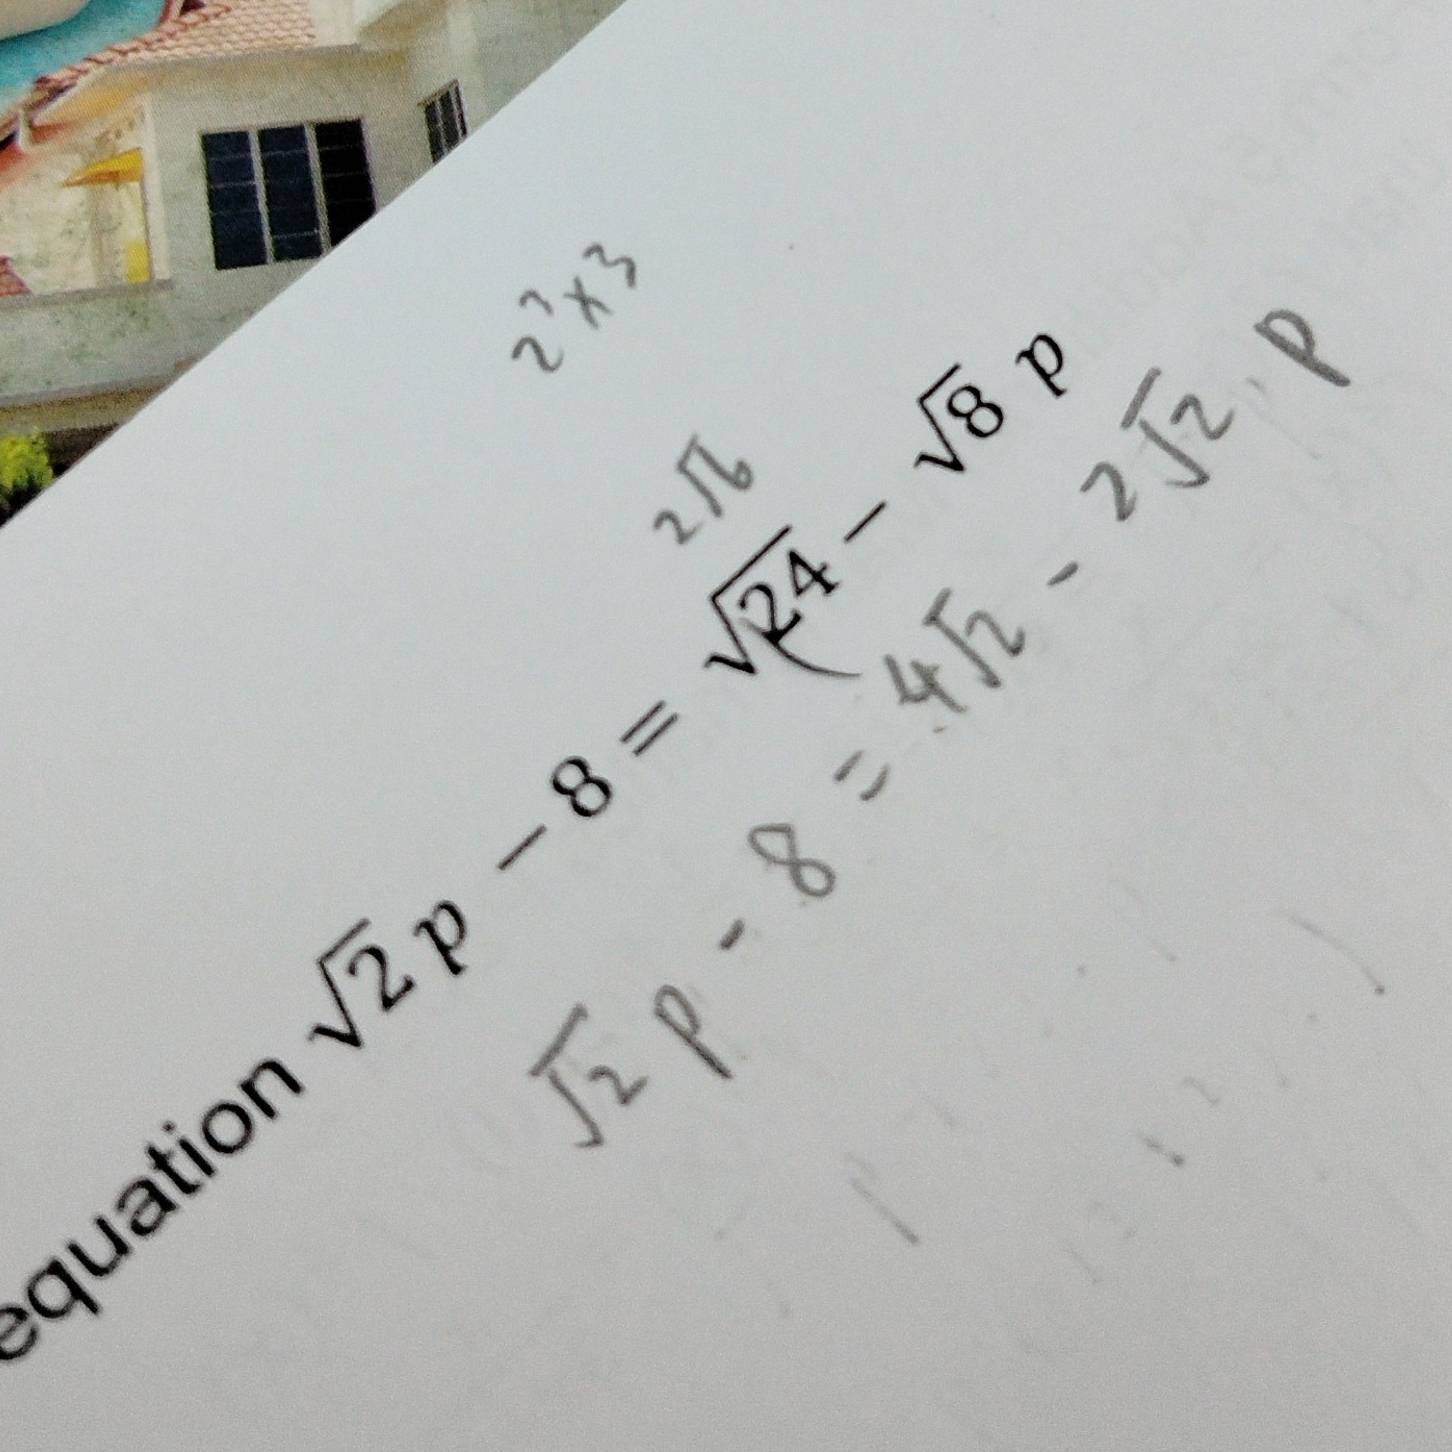 2³×3
2√6
equation √2 p − 8 = √24 − √8 p
√2 p - 8 = 4√2 - 2√2 p